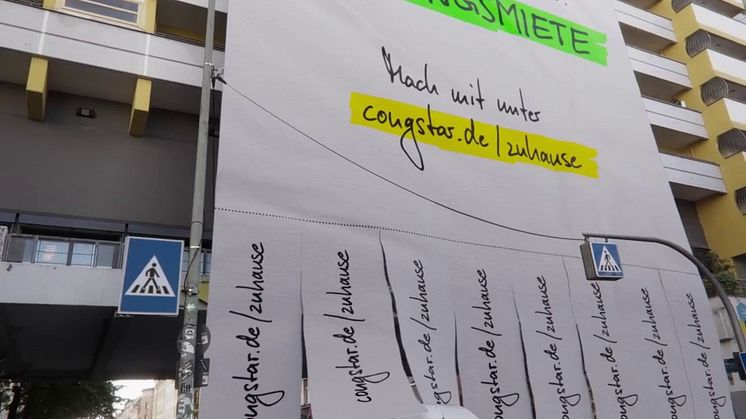 NGSMIETE
Mach mit unter
congstar.de/zuhause
congstar.de/zuhause
congstar.de/zuhause
congstar.de/zuhause
congstar.de/zuhause
congstar.de/zuhause
congstar.de/zuhause
congstar.de/zuhause
congstar.de/zuhause